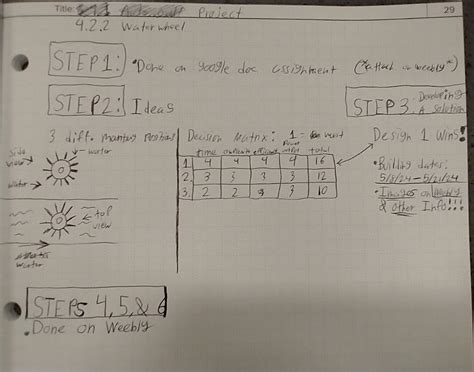 Title: Project 29
4.2.2 Waterwheel
STEP 1: • Done on google doc assignment (*attach on weebly*)
STEP 2: Ideas
STEP 3: Developing a solution
3 diff. mounting positions
Decision Matrix: 1 =
Design 1 Wins!
side view
water
water
time total
1. 4 4 4 4 16
2. 3 3 3 3 12
3. 2 2 3 3 10
• Building dates:
5/8/24 – 5/21/24
• Images on Weebly
& other Info!!!
top view
water
STEPS 4, 5, & 6
• Done on Weebly